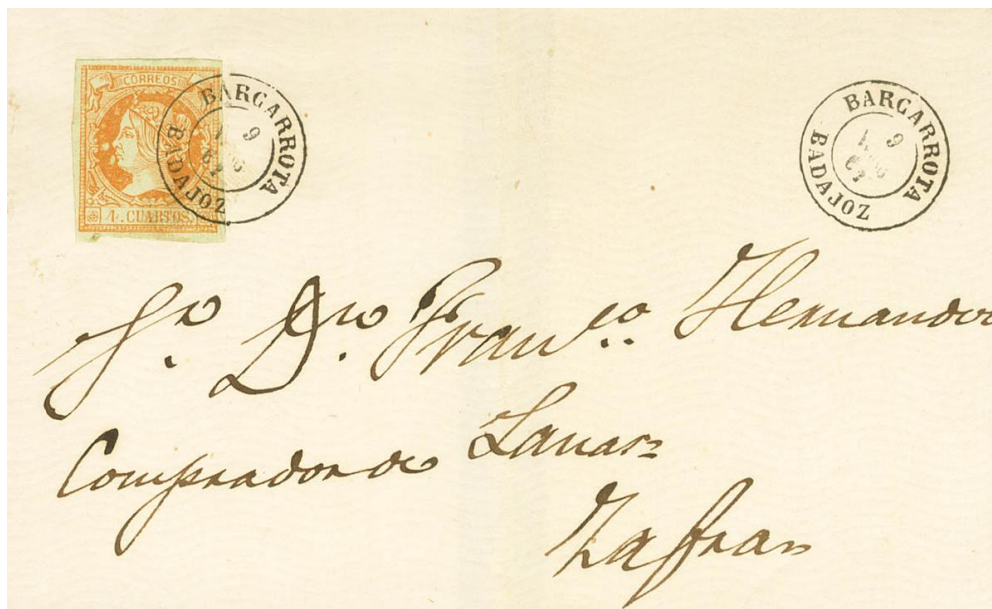 CORREOS
4 CUARTOS
BARCARROTA
9
BADAJOZ
BARCARROTA
9
62
BADAJOZ
Sr. Dn. Franco. Hernandez
Comprador de Lanas
Zafra